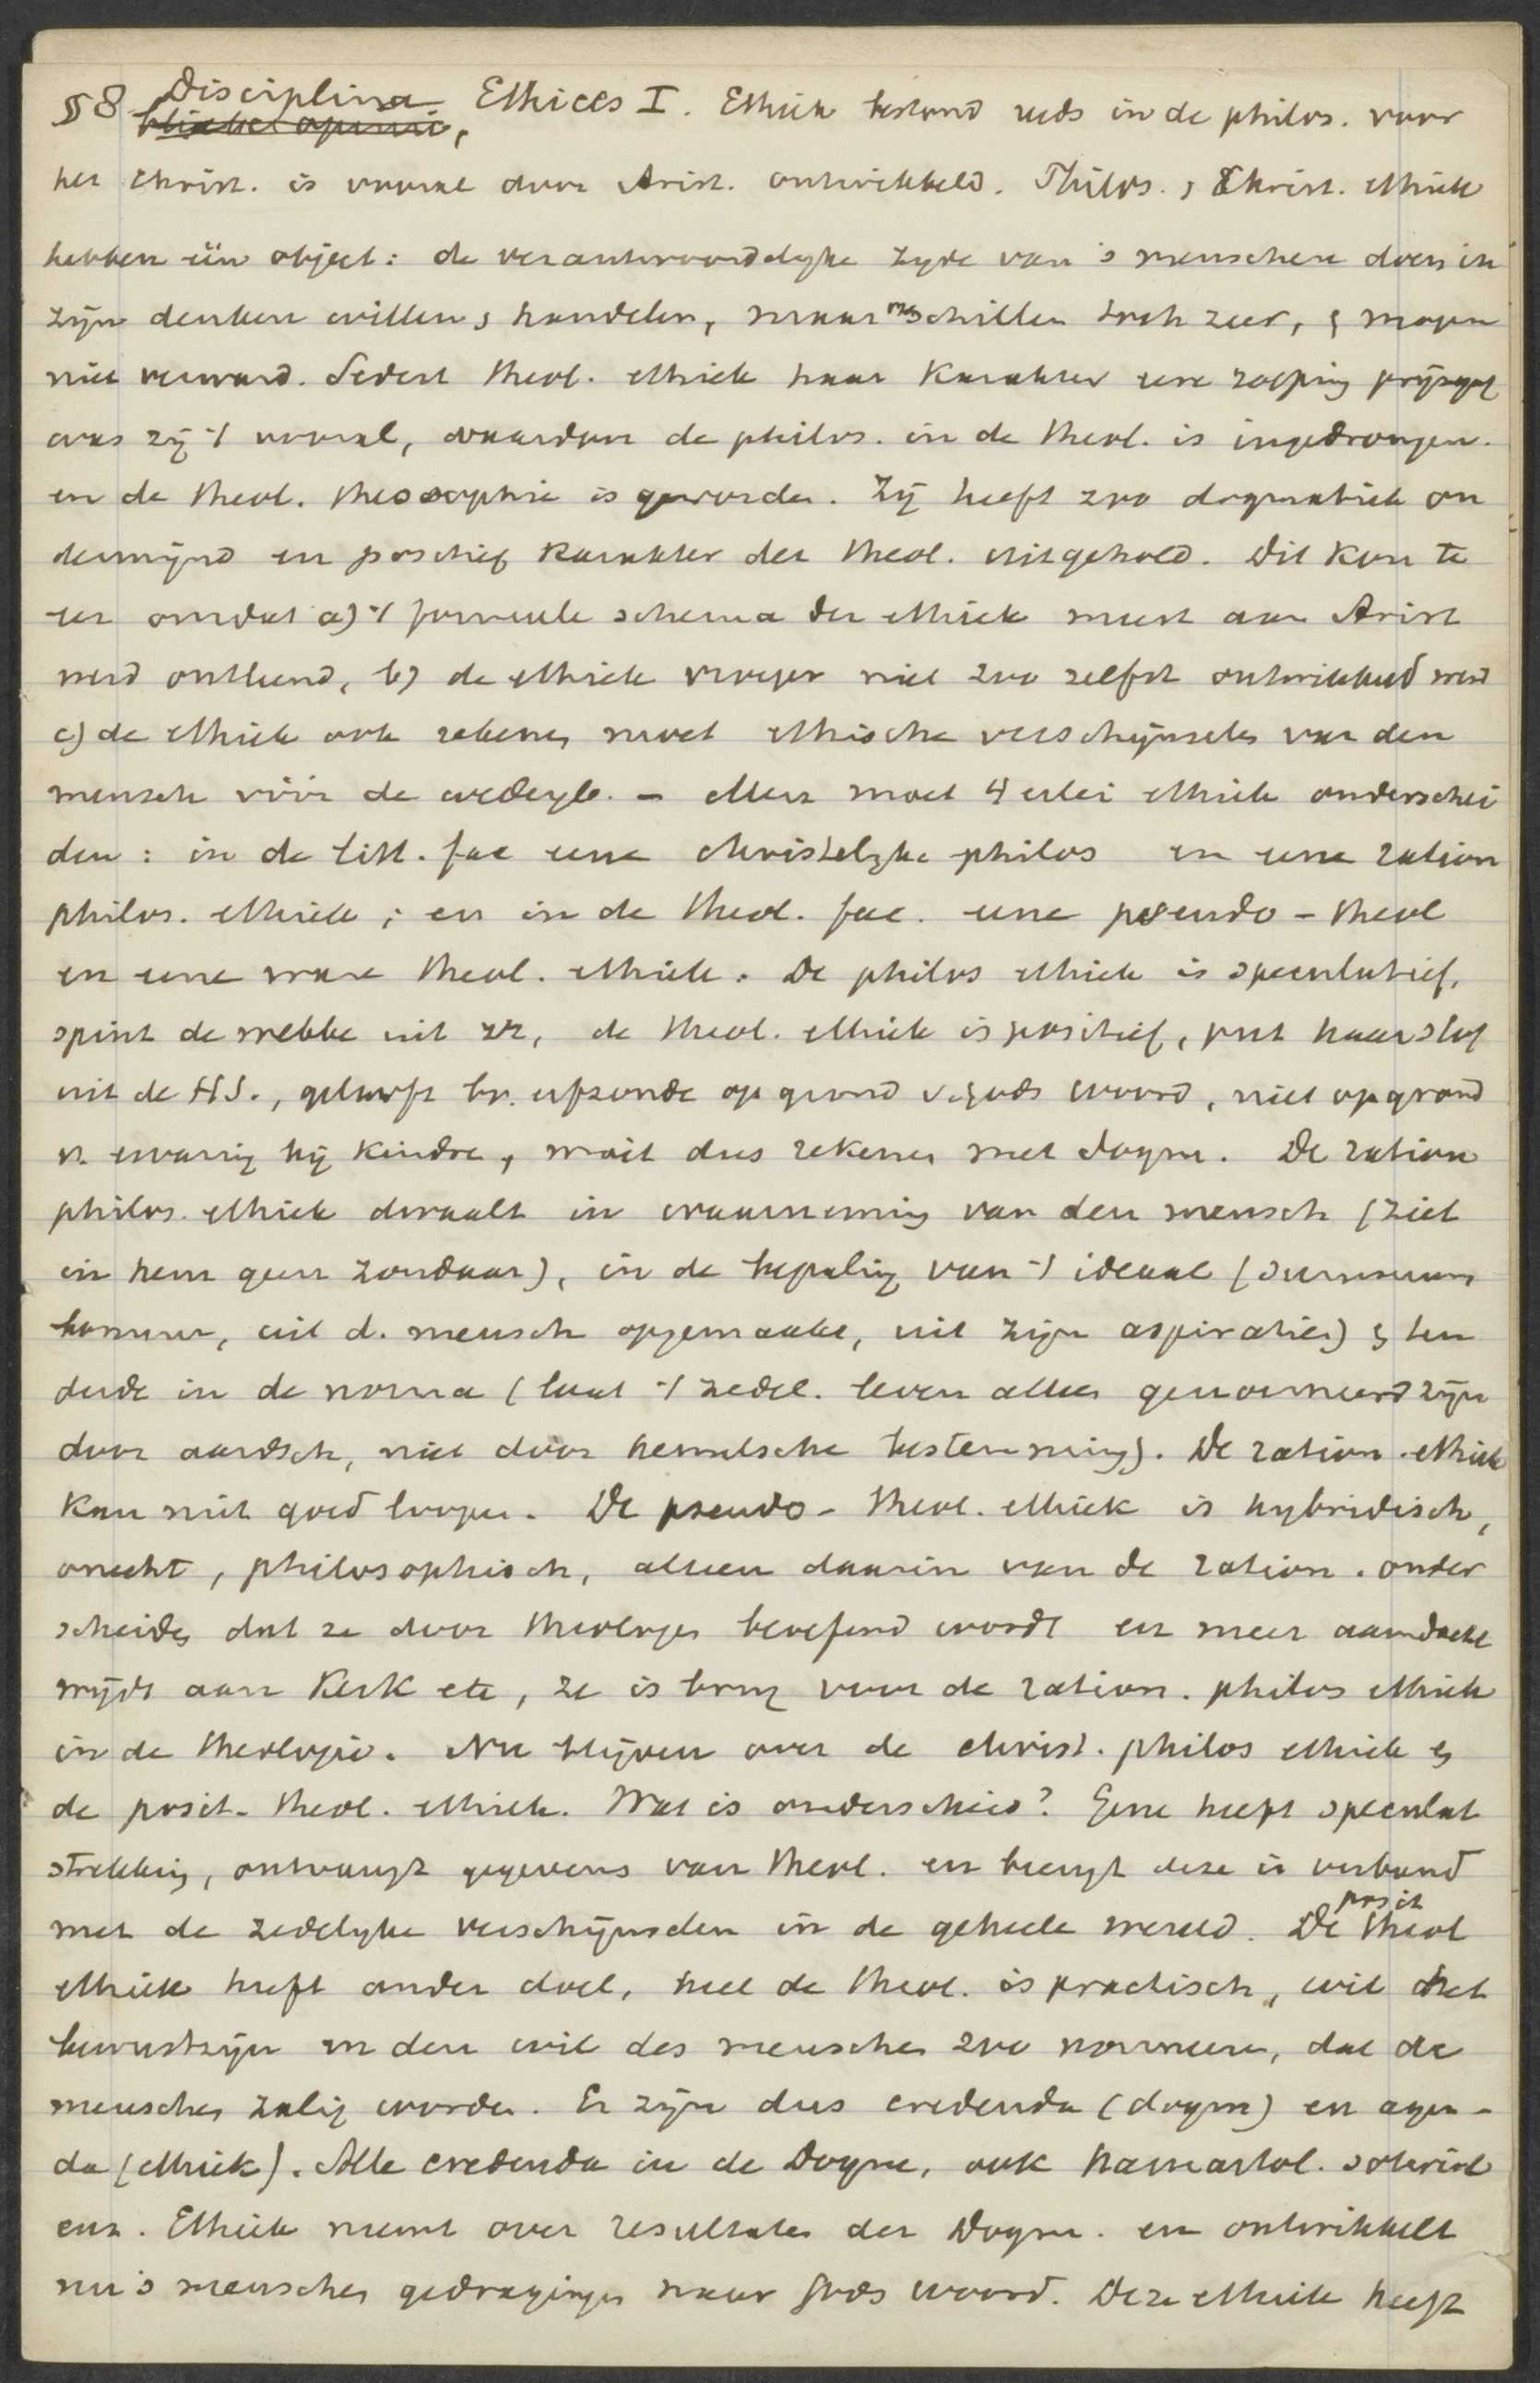 §8 Disciplina Ethices I. Ethiek bestond reeds in de philos. voor
het Christ. is vooral door Arist. ontwikkeld. Philos. & Christ. ethiek
hebben één object: de verantwoordelyke zyde van 's menschen doen in
zijn denken willen & handelen, maar verschillen toch zeer, & mogen
niet verward. Sedert theol. ethiek haar karakter ener roeping prijsgaf
was zij 't vooral, waardoor de philos. in de theol. is ingedrongen.
en de theol. theosophie is geworden. Zij heeft zoo dogmatiek on
dermijnd en positief karakter der theol. uitgehold. Dit kon te
eer omdat a) 't formeele schema der ethiek meest aan Arist
werd ontleend, b) de ethiek vroeger niet zoo zelfst ontwikkeld werd
c) de ethiek ook rekenen moet ethische verschijnselen van den
mensch vóór de wedergb. - Men moet 4 erlei ethiek onderschei
den: in de litt. fac eene christelyke philos en eene ration
philos. ethiek; en in de theol. fac. eene pseudo-theol
en eene ware theol. ethiek. De philos ethiek is speculatief,
spint de webbe uit zz, de theol. ethiek is positief, put haar stof
uit de H.S., gelooft bv. erfzonde op grond v. Gods woord, niet op grond
v. ervaring bij kindren, moet dus rekenen met dogm. De ration
philos. ethiek dwaalt in waarneming van den mensch (ziet
in hem geen zondaar), in de bepaling van 't ideaal (summum
bonum, uit d. mensch opgemaakt, uit zijn aspiraties) & ten
derde in de norma (laat 't zedel. leven alles genormeerd zijn
door aardsch, niet door hemelsche bestemming). De ration. ethiek
kan niet goed loopen. De pseudo-theol. ethiek is hybridisch,
onecht, philosophisch, alleen daarin van de ration. onder
scheiden dat ze door theologen beoefend wordt en meer aandacht
wijdt aan Kerk etc, ze is brug voor de ration. philos ethiek
in de theologie. Nu blijven over de christ. philos ethiek &
de posit. theol. ethiek. Wat is onderscheid? Gene heeft speculat
strekking, ontvangt gegevens van theol. en brengt deze in verband
met de zedelyke verschijnselen in de geheele wereld. De posit theol
ethiek heeft ander doel, heel de theol. is practisch, wil het
bewustzijn en den wil des menschen zoo normeeren, dat de
menschen zalig worden. Er zijn dus credenda (dogm) en agen-
da (ethiek). Alle credenda in de Dogm, ook hamartol. soteriol
enz. Ethiek neemt over resultaten der Dogm. en ontwikkelt
nu 's menschen gedragingen naar Gods woord. Deze ethiek heeft